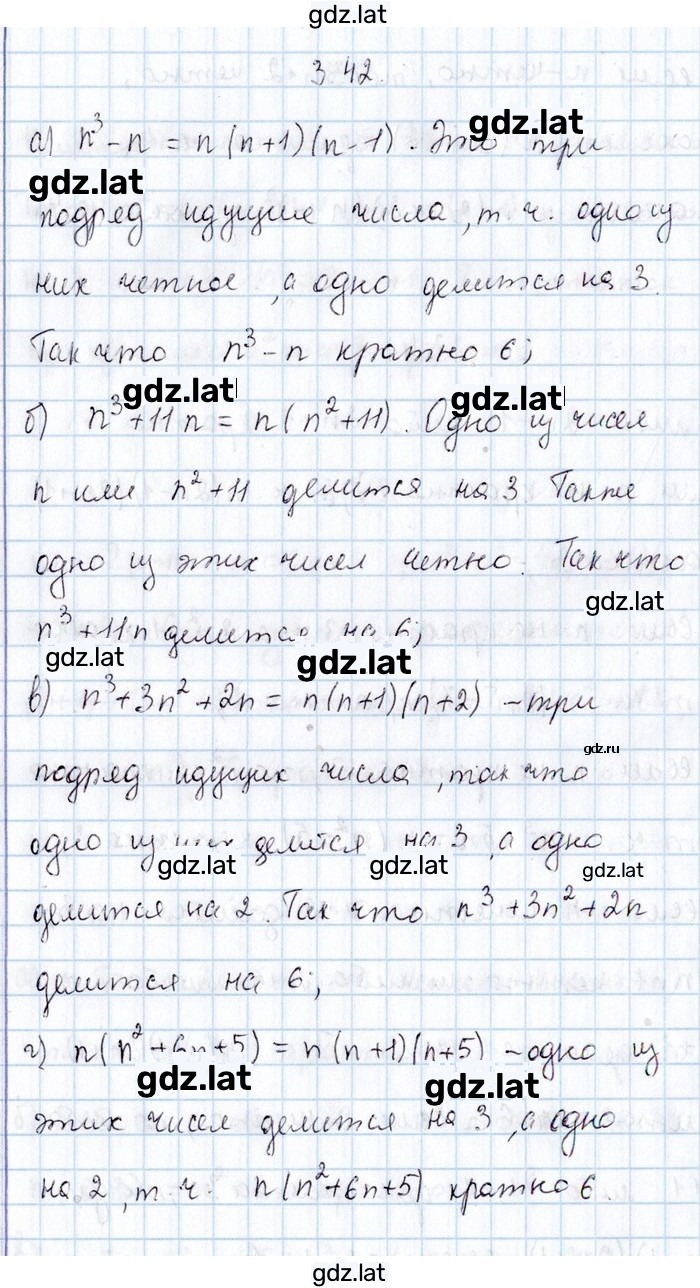 gdz.lat
3.42.
а) n³ - n = n(n+1)(n-1). Это три
gdz.lat
gdz.lat
подряд идущие числа, т.ч. одно из
них четное, а одно делится на 3.
Так что n³ - n кратно 6;
gdz.lat
gdz.lat
б) n³ + 11n = n(n² + 11). Одно из чисел
n или n² + 11 делится на 3 Также
одно из этих чисел четно. Так что
gdz.lat
n³ + 11n делится на 6;
gdz.lat
gdz.lat
в) n³ + 3n² + 2n = n(n+1)(n+2) - три
gdz.ru
подряд идущих числа, так что
одно из делится на 3, а одно
gdz.lat
gdz.lat
gdz.lat
делится на 2. Так что n³ + 3n² + 2n
делится на 6;
г) n(n² + 6n + 5) = n(n+1)(n+5) - одно из
gdz.lat
gdz.lat
этих чисел делится на 3, а одно
на 2, т.ч. n(n² + 6n + 5) кратно 6.
gdz.lat